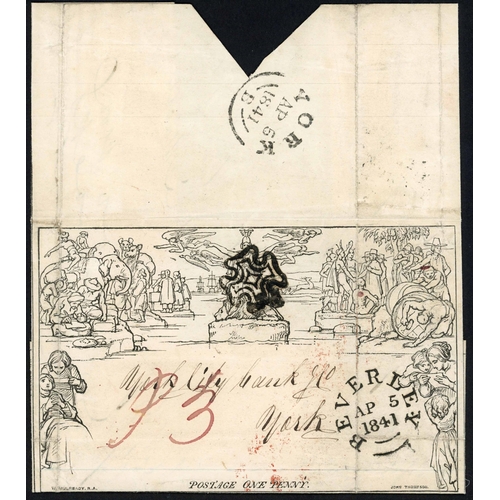 YORK
AP 6
1841
York City bank &Co
York
P3
BEVERLEY
AP 5
1841
W. MULREADY, R.A.
POSTAGE ONE PENNY.
JOHN THOMPSON.